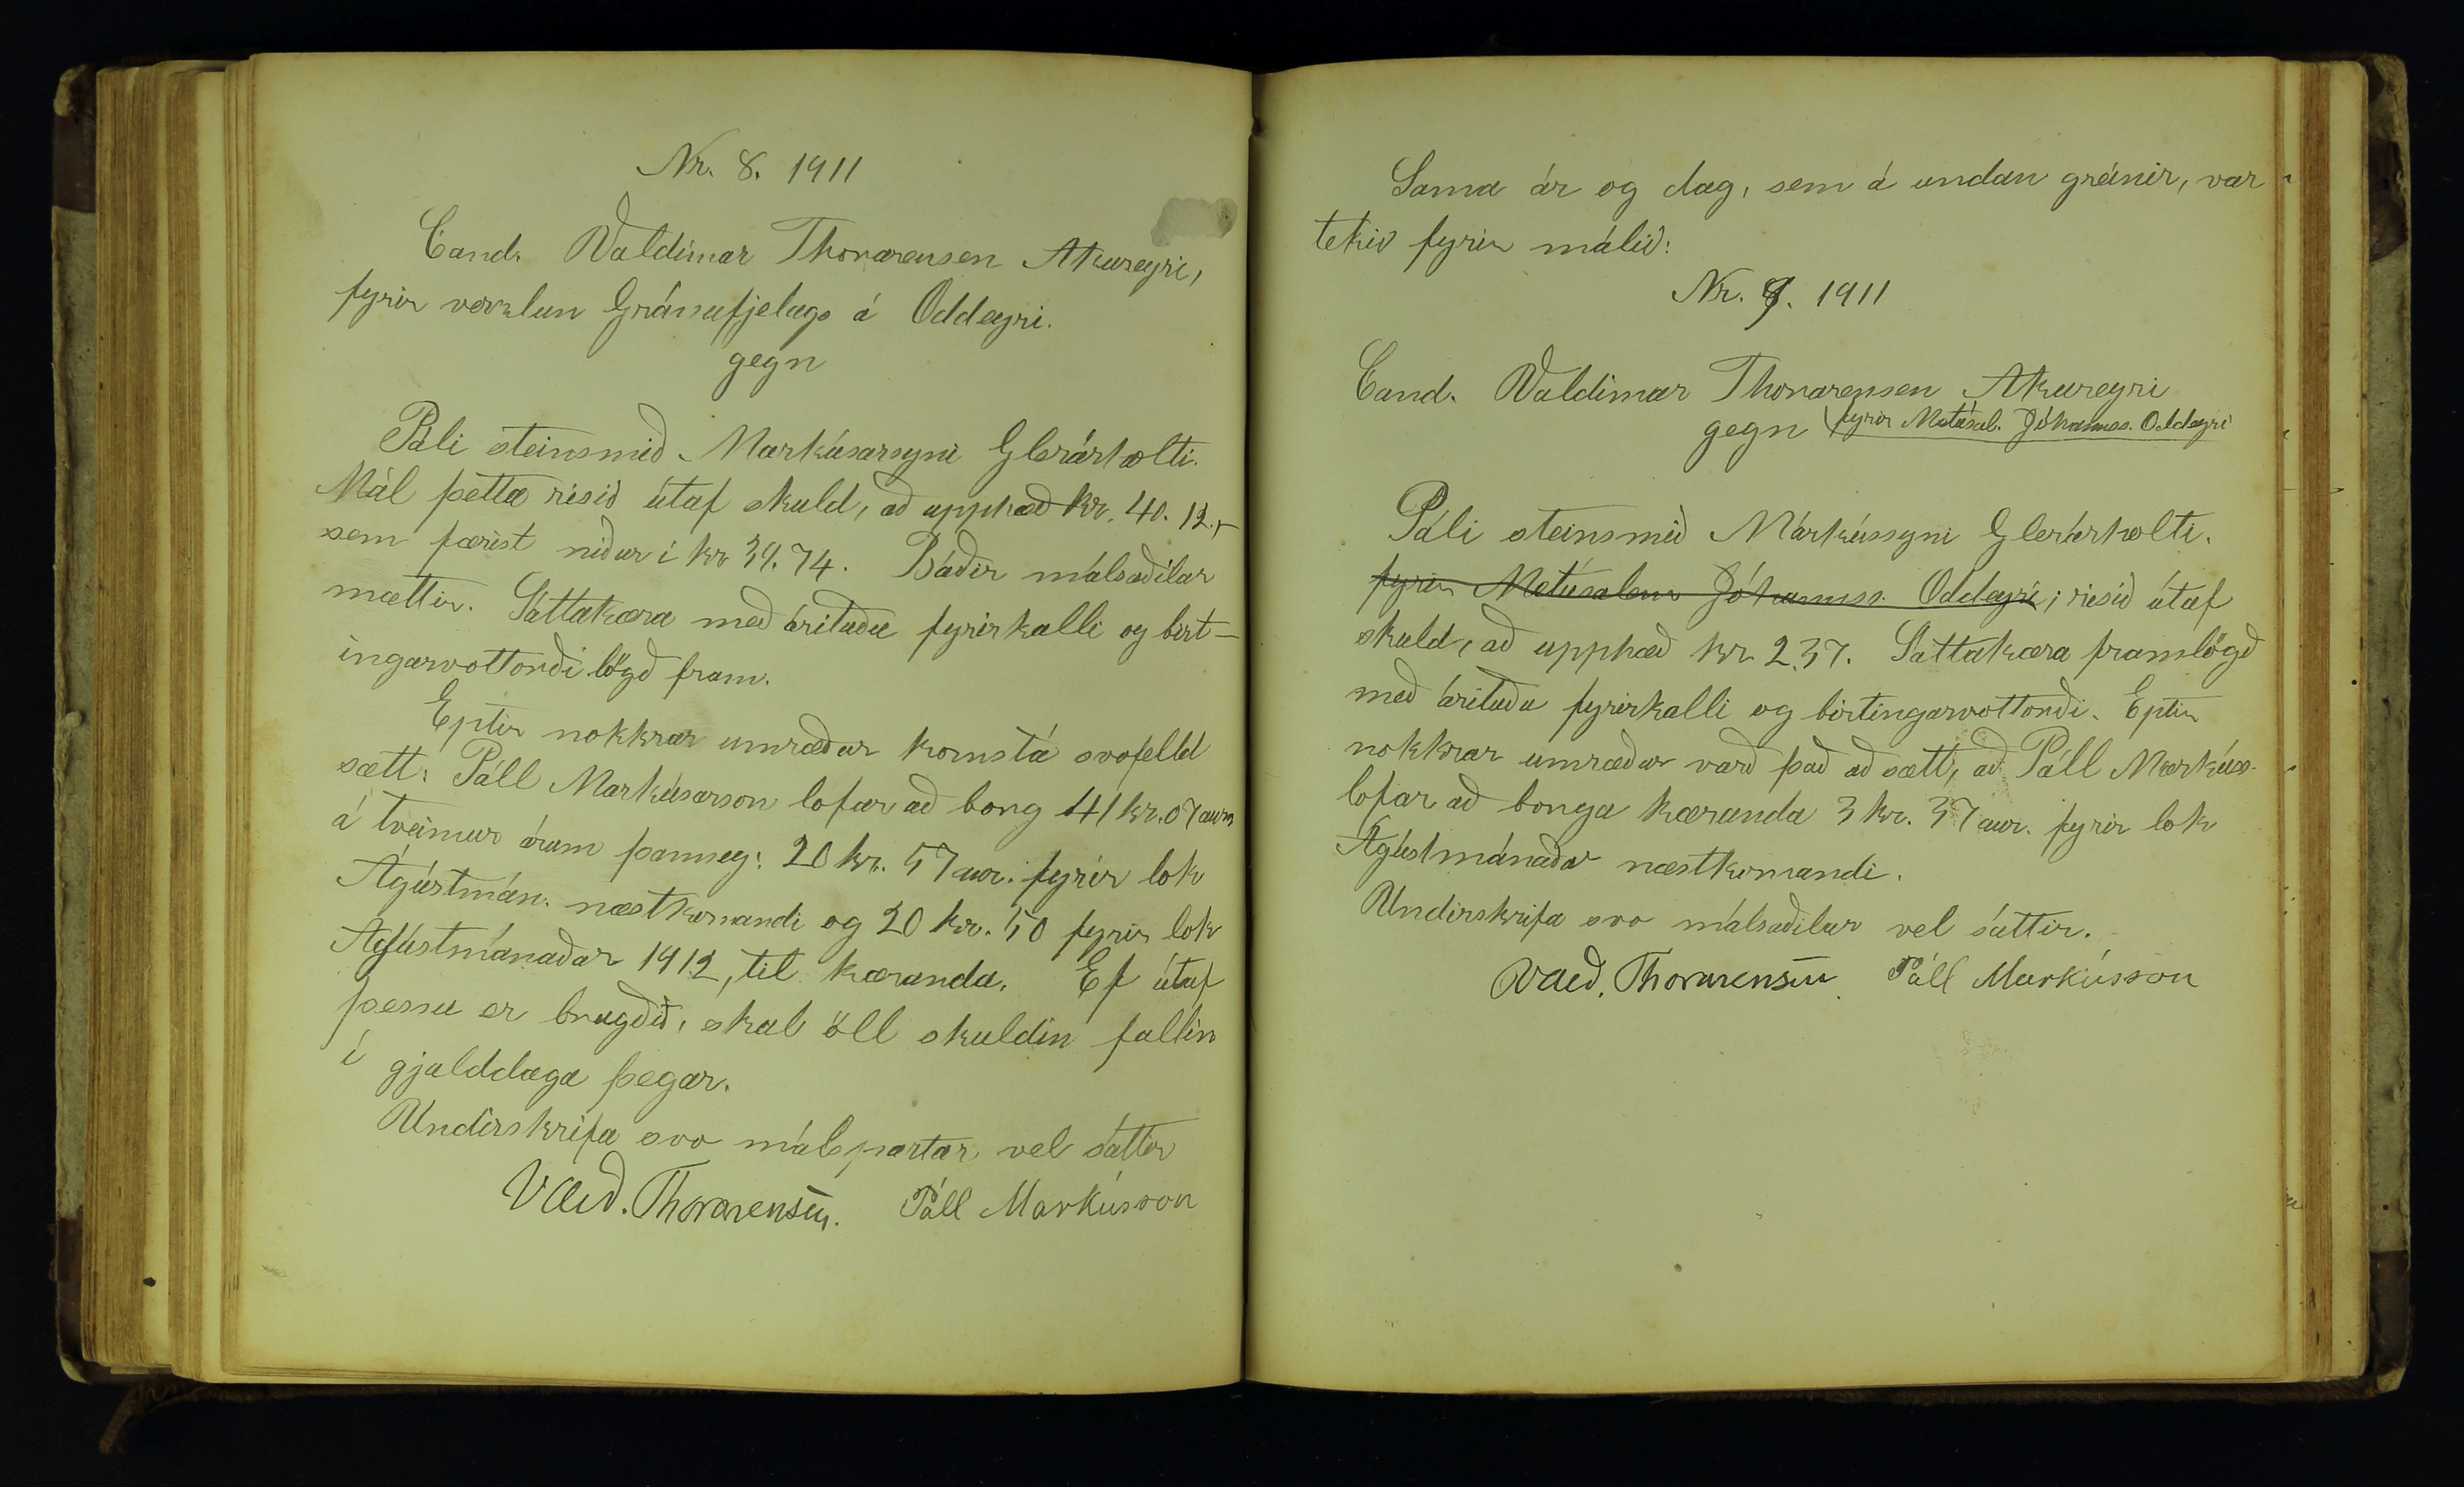 Nr. 8. 1911
Cand. Valdimar Thorarensen Akureyri,
fyrir verzlun Gránufjelags á Oddeyri.
gegn
Páli steinsmið Markúsarsyni Glerárholti.
Mál þetta risið útaf skuld, að upphæð kr. 40.12.,
sem færist niður í kr 39.74. Báðir málsaðilar
mættir. Sáttakæra með árituðu fyrirkalli og birt-
ingarvottorði lögð fram.
Eptir nokkrar umræður komst á svofelld
sætt: Páll Markúsarson lofar að borg 41 kr. 07 aura
á tveimur árum þannig: 20 kr. 57 aur. fyrir lok
Ágústmán. næstkomandi og 20 kr. 50 fyrir lok
Ágústmánaðar 1912, til kæranda. Ef útaf
þessu er brugðið, skal öll skuldin fallin
í gjalddaga þegar.
Undirskrifa svo málspartar vel sáttir
Vald. Thorarensen. Páll Markússon
Sama ár og dag, sem á undan greinir, var
tekið fyrir málið:
Nr. 9. 1911
Cand. Valdimar Thorarensen Akureyri
gegn fyrir Metúsal. Jóhannss. Oddeyri
Páli steinsmið Markússyni Glerárholti.
fyrir Metúsalem Jóhannss. Oddeyri; risið útaf
skuld, að upphæð kr. 2.37. Sáttakæra framlögð
með árituðu fyrirkalli og birtingarvottorði. Eptir
nokkrar umræður varð það að sætt, að Páll Markúss.
lofar að borga kæranda 3 kr. 37 aur. fyrir lok
Ágústmánaðar næstkomandi.
Undirskrifa svo málsaðilar vel sáttir.
Vald. Thorarensen. Páll Markússon